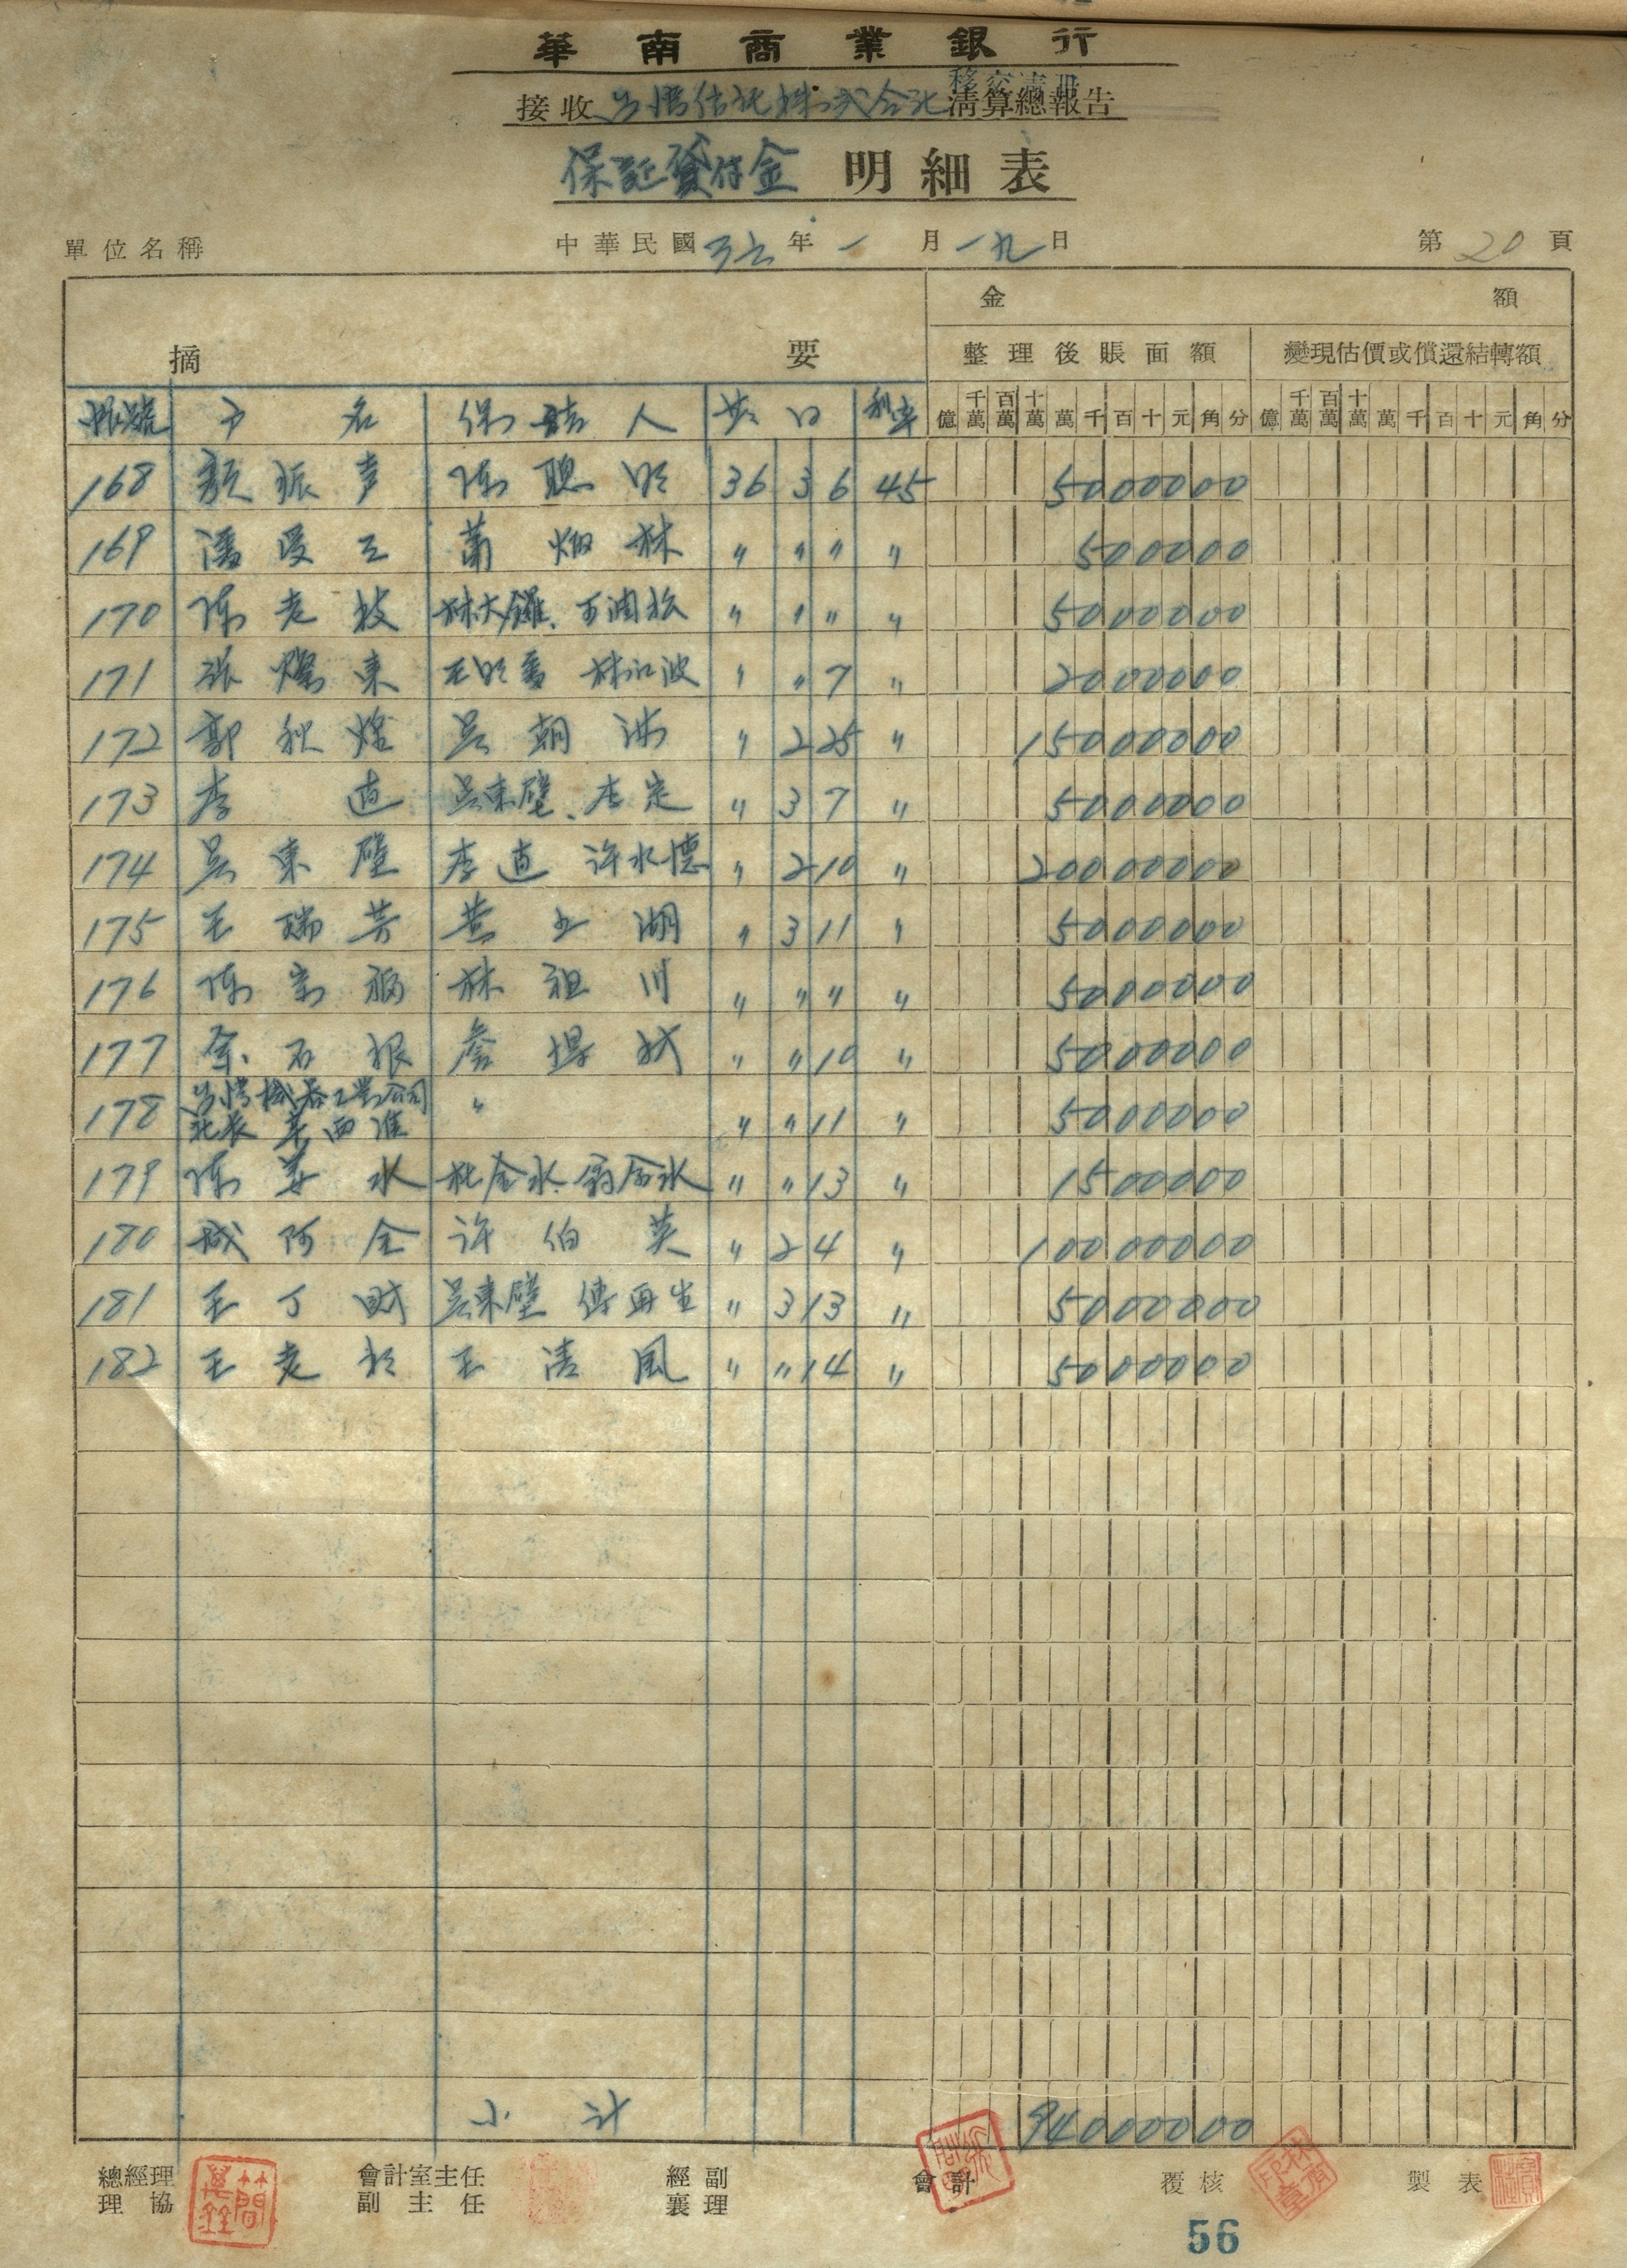 華南商業銀行
移交清冊
接收台灣信託株式会社清算總報告
保証貸付金 明細表
單位名稱 中華民國 三六 年 一 月 一九 日 第 20 頁
金 額
摘 要 整理後賬面額 變現估價或償還結轉額
帳號 戶名 保証人 期日 利率 億 千萬 百萬 十萬 萬 千 百 十 元 角 分 億 千萬 百萬 十萬 萬 千 百 十 元 角 分
168 顏振声 陳聰明 36 3 6 45 5000000
169 潘受三 蕭烟林 〃 〃 〃 〃 500000
170 陳老枝 林大鑼、王清松 〃 〃 〃 〃 5000000
171 張燦東 王明富 林江波 〃 〃 7 〃 2000000
172 郭秋煌 吳朝沛 〃 2 25 〃 15000000
173 李直 吳東壁、李定 〃 3 7 〃 5000000
174 吳東壁 李直 許水德 〃 2 10 〃 20000000
175 王瑞芳 黃玉湖 〃 3 11 〃 5000000
176 陳京福 林祖川 〃 〃 〃 〃 5000000
177 余石根 詹得 〃 〃 10 〃 5000000
178 台灣機器工業公司 社長 葉西淮 〃 〃 〃 11 〃 5000000
179 陳萬水 杜金水、翁金水 〃 〃 13 〃 1500000
180 阿全 許伯英 〃 2 4 〃 10000000
181 王丁財 吳東壁 傅再生 〃 3 13 〃 5000000
182 王老 王清風 〃 〃 14 〃 5000000
小計 94000000
總經理 協理 會計室主任 副主任 經副襄理 會計 覆核 製表
56